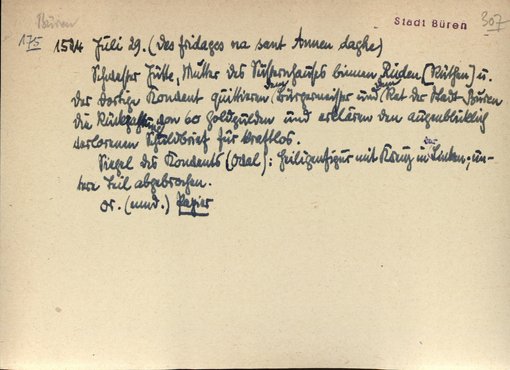 Büren
Stadt Büren
307
175
1524 Juli 29. (des fridages na sant Annen daghe)
Schwester Jütte, Mutter des Süsternhauses binnen Ruden [Rüthen] u.
der dortige Konvent quittieren dem Bürgermeister und dem Rat der Stadt Büren
die Rückzahlung von 60 Goldgulden und erklären den augenblicklich
verlorenen Schuldbrief für kraftlos.
Siegel des Konvents (oval): Heiligenfigur mit Kreuz in der Linken, un-
tere Teil abgebrochen.
Or. (mnd.) Papier